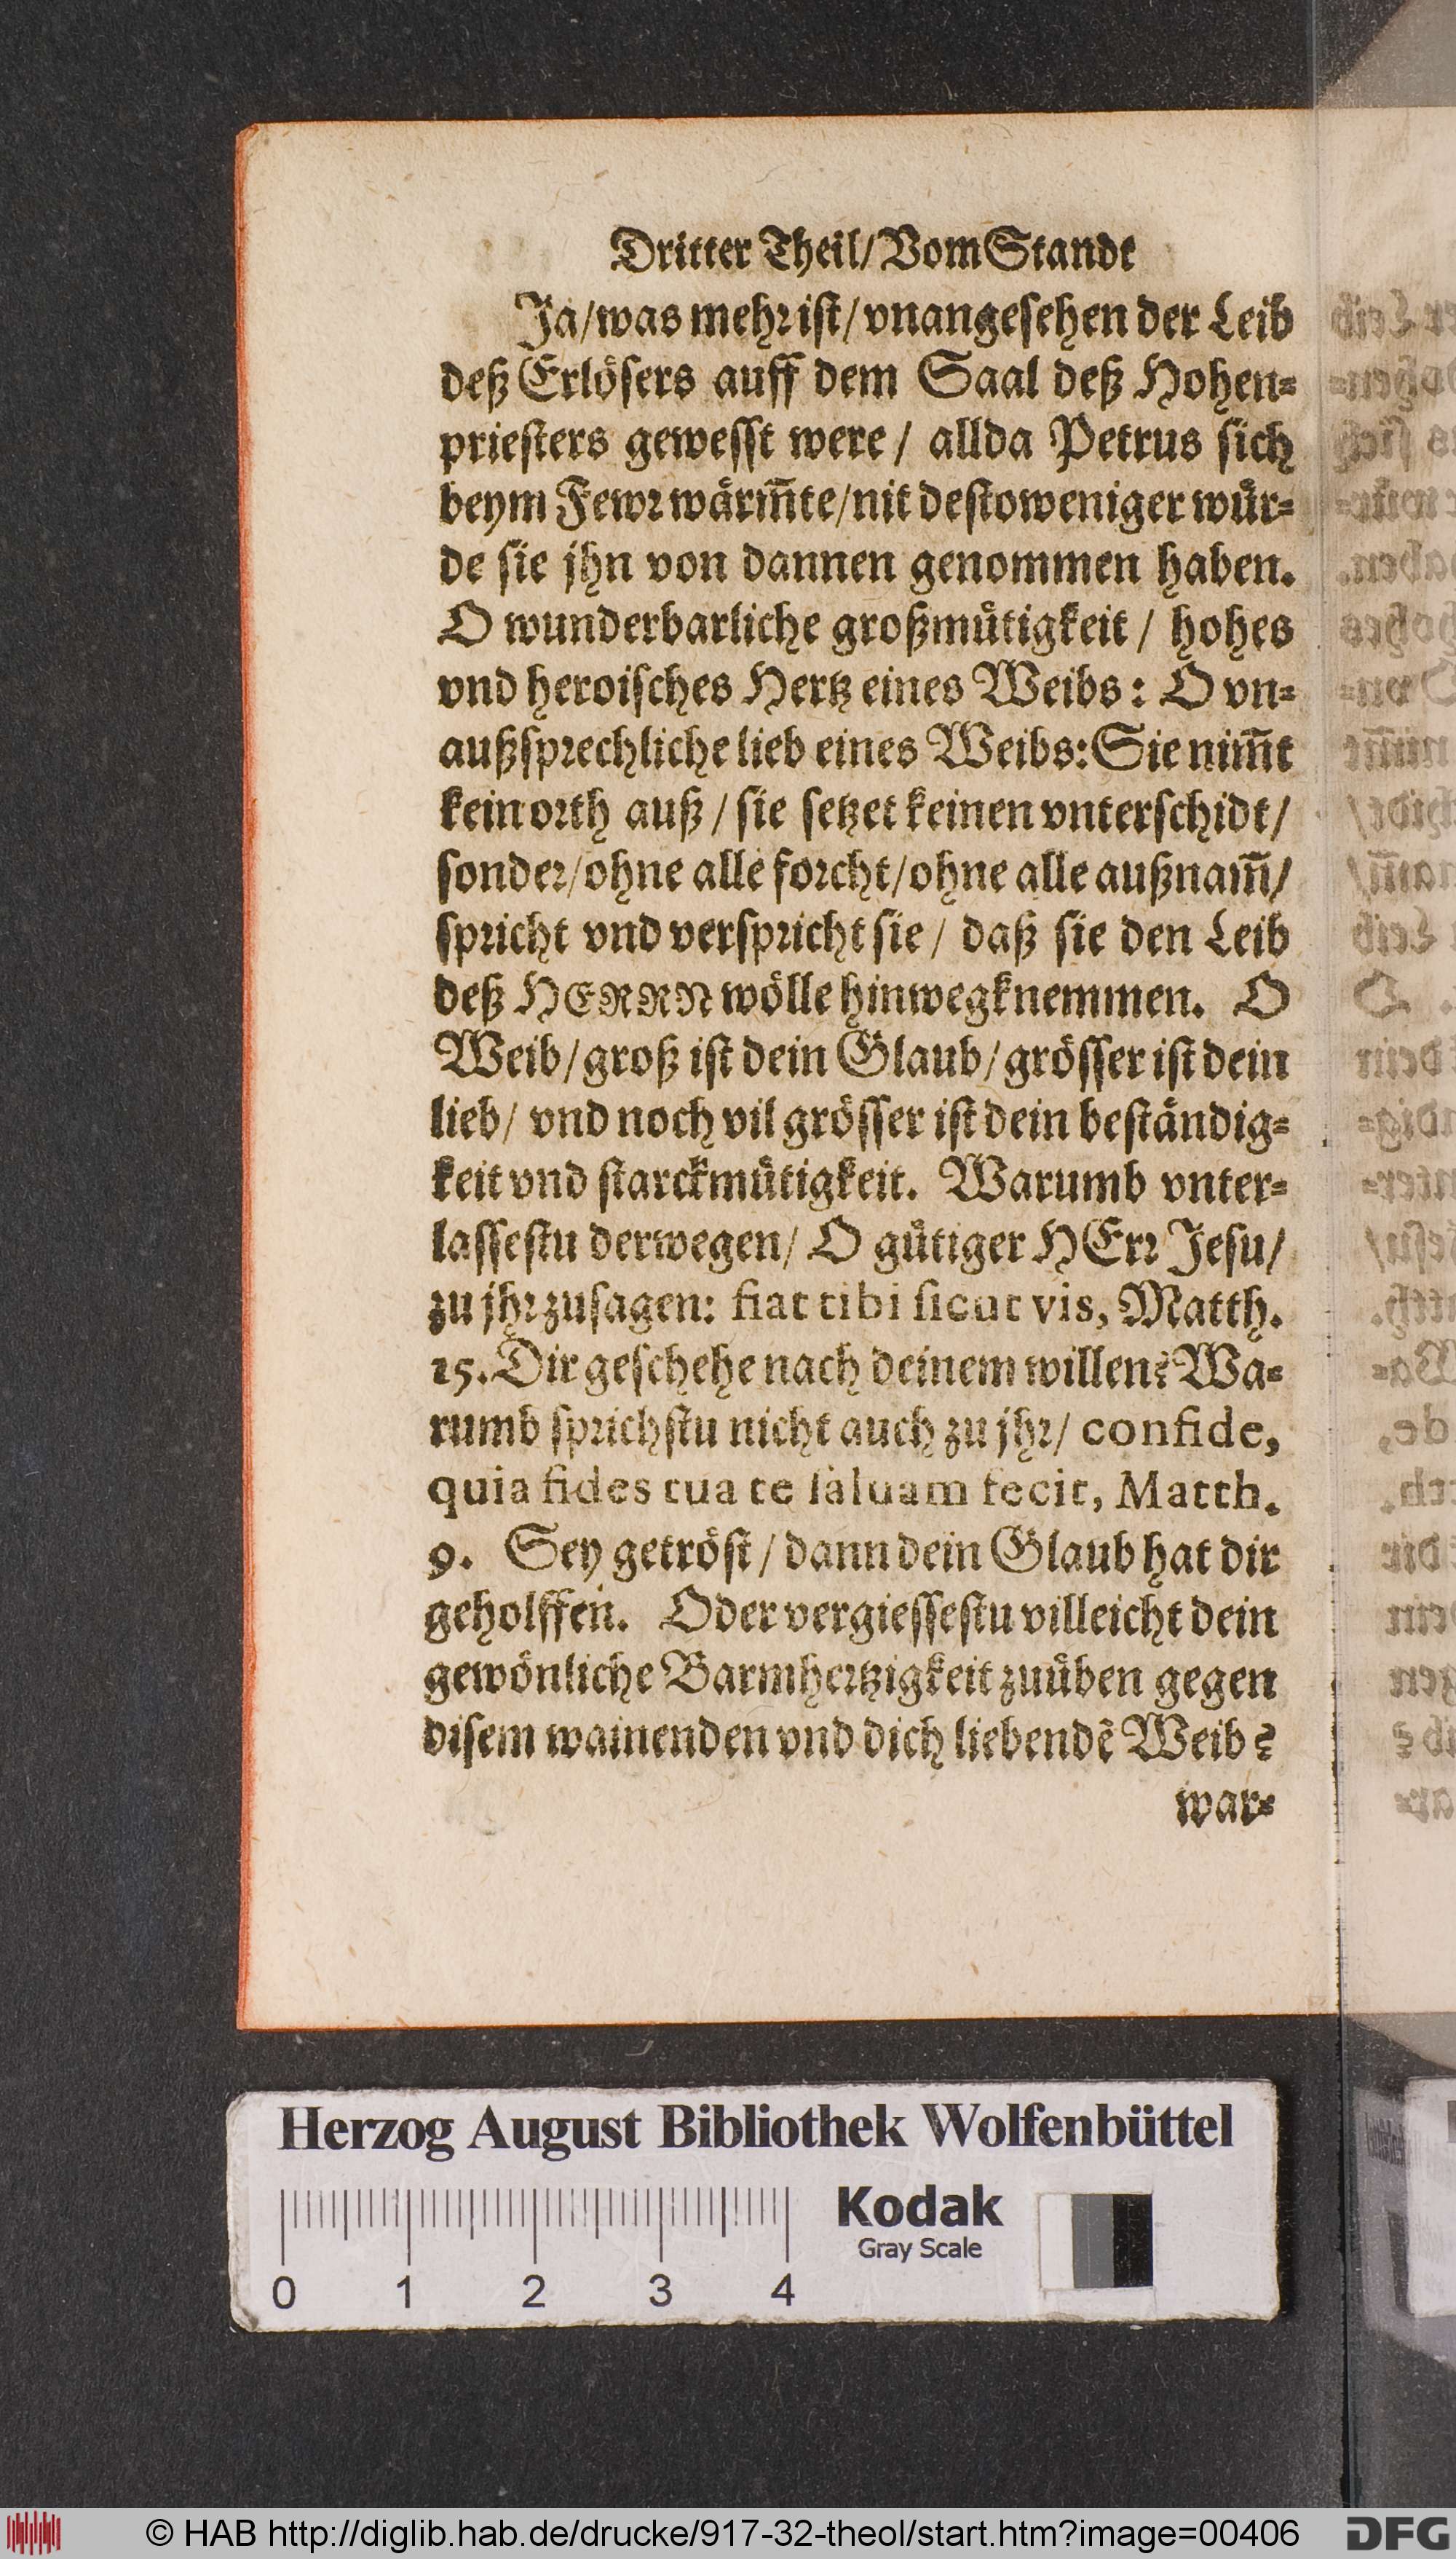 Dritter Theil/ Vom Standt
Ja/ was mehr ist/ vnangesehen der Leib
deß Erlösers auff dem Saal deß Hohen-
priesters gewesst were/ allda Petrus sich
beym Fewr wärm̃te/ nit destoweniger wür-
de sie jhn von dannen genommen haben.
O wunderbarliche großmütigkeit/ hohes
vnd heroisches Hertz eines Weibs: O vn-
außsprechliche lieb eines Weibs: Sie nim̃t
kein orth auß/ sie setzet keinen vnterschidt/
sonder/ ohne alle forcht/ ohne alle außnam̃/
spricht vnd verspricht sie/ daß sie den Leib
deß HERRN wölle hinwegknemmen. O
Weib/ groß ist dein Glaub/ grösser ist dein
lieb/ vnd noch vil grösser ist dein beständig-
keit vnd starckmütigkeit. Warumb vnter-
lassestu derwegen/ O gütiger HErr Jesu/
zu jhr zusagen: fiat tibi sicut vis, Matth.
15. Dir geschehe nach deinem willen? Wa-
rumb sprichstu nicht auch zu jhr/ confide,
quia fides tua te saluam fecit, Matth.
9. Sey getröst/ dann dein Glaub hat dir
geholffen. Oder vergiessestu villeicht dein
gewönliche Barmhertzigkeit zuüben gegen
disem wainenden vnd dich liebendẽ Weib?
war-
Herzog August Bibliothek Wolfenbüttel
Kodak
Gray Scale
0 1 2 3 4
© HAB http://diglib.hab.de/drucke/917-32-theol/start.htm?image=00406
DFG